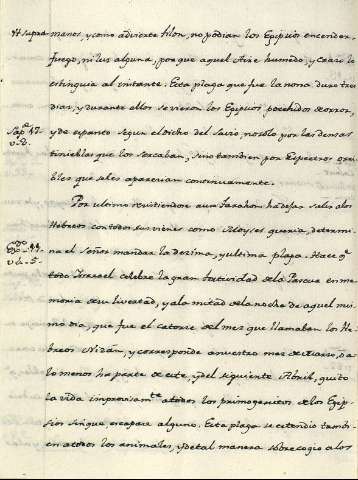 H supra
manos, y como advierte filon, no podian los Egipcios encender
fuego, ni lus alguna, porque aquel Aire humedo, y craso lo
estinguia al instante. Esta plaga que fue la nona duro tres
dias, y durante ellos se vieron los Egipcios posehidos de orror,
Sap. 17.
v. 2.
y de espanto segun el dicho del Savio, no solo por las densas
tinieblas que los sercaban, sino tambien por Espectros orri-
bles que seles aparecian continuamente.
Por ultimo resistiendose aun Farahon ha dejar salir a los
Hebreos con todos sus vienes como Moyses queria, determi-
Exo. 11.
v. 4. 5.
na el Señor mandar la dezima, y ultima plaga. Hace q.e
todo Isrrael celebre la gran festividad de la Pascua en me-
moria de su livertad, y a la mitad de la noche de aquel mis-
mo dia, que fue el catorce del mes que llamaban los He-
breos Nizán, y corresponde a nuestro mes de Marzo, o a
lo menos ha parte de este, y del siguiente Abril, quito
la vida improvisam.te a todos los primogenitos de los Egip-
sios sin que escapare alguno. Esta plaga se extendio tambi-
en a todos los animales, y de tal manera sobrecogio a los